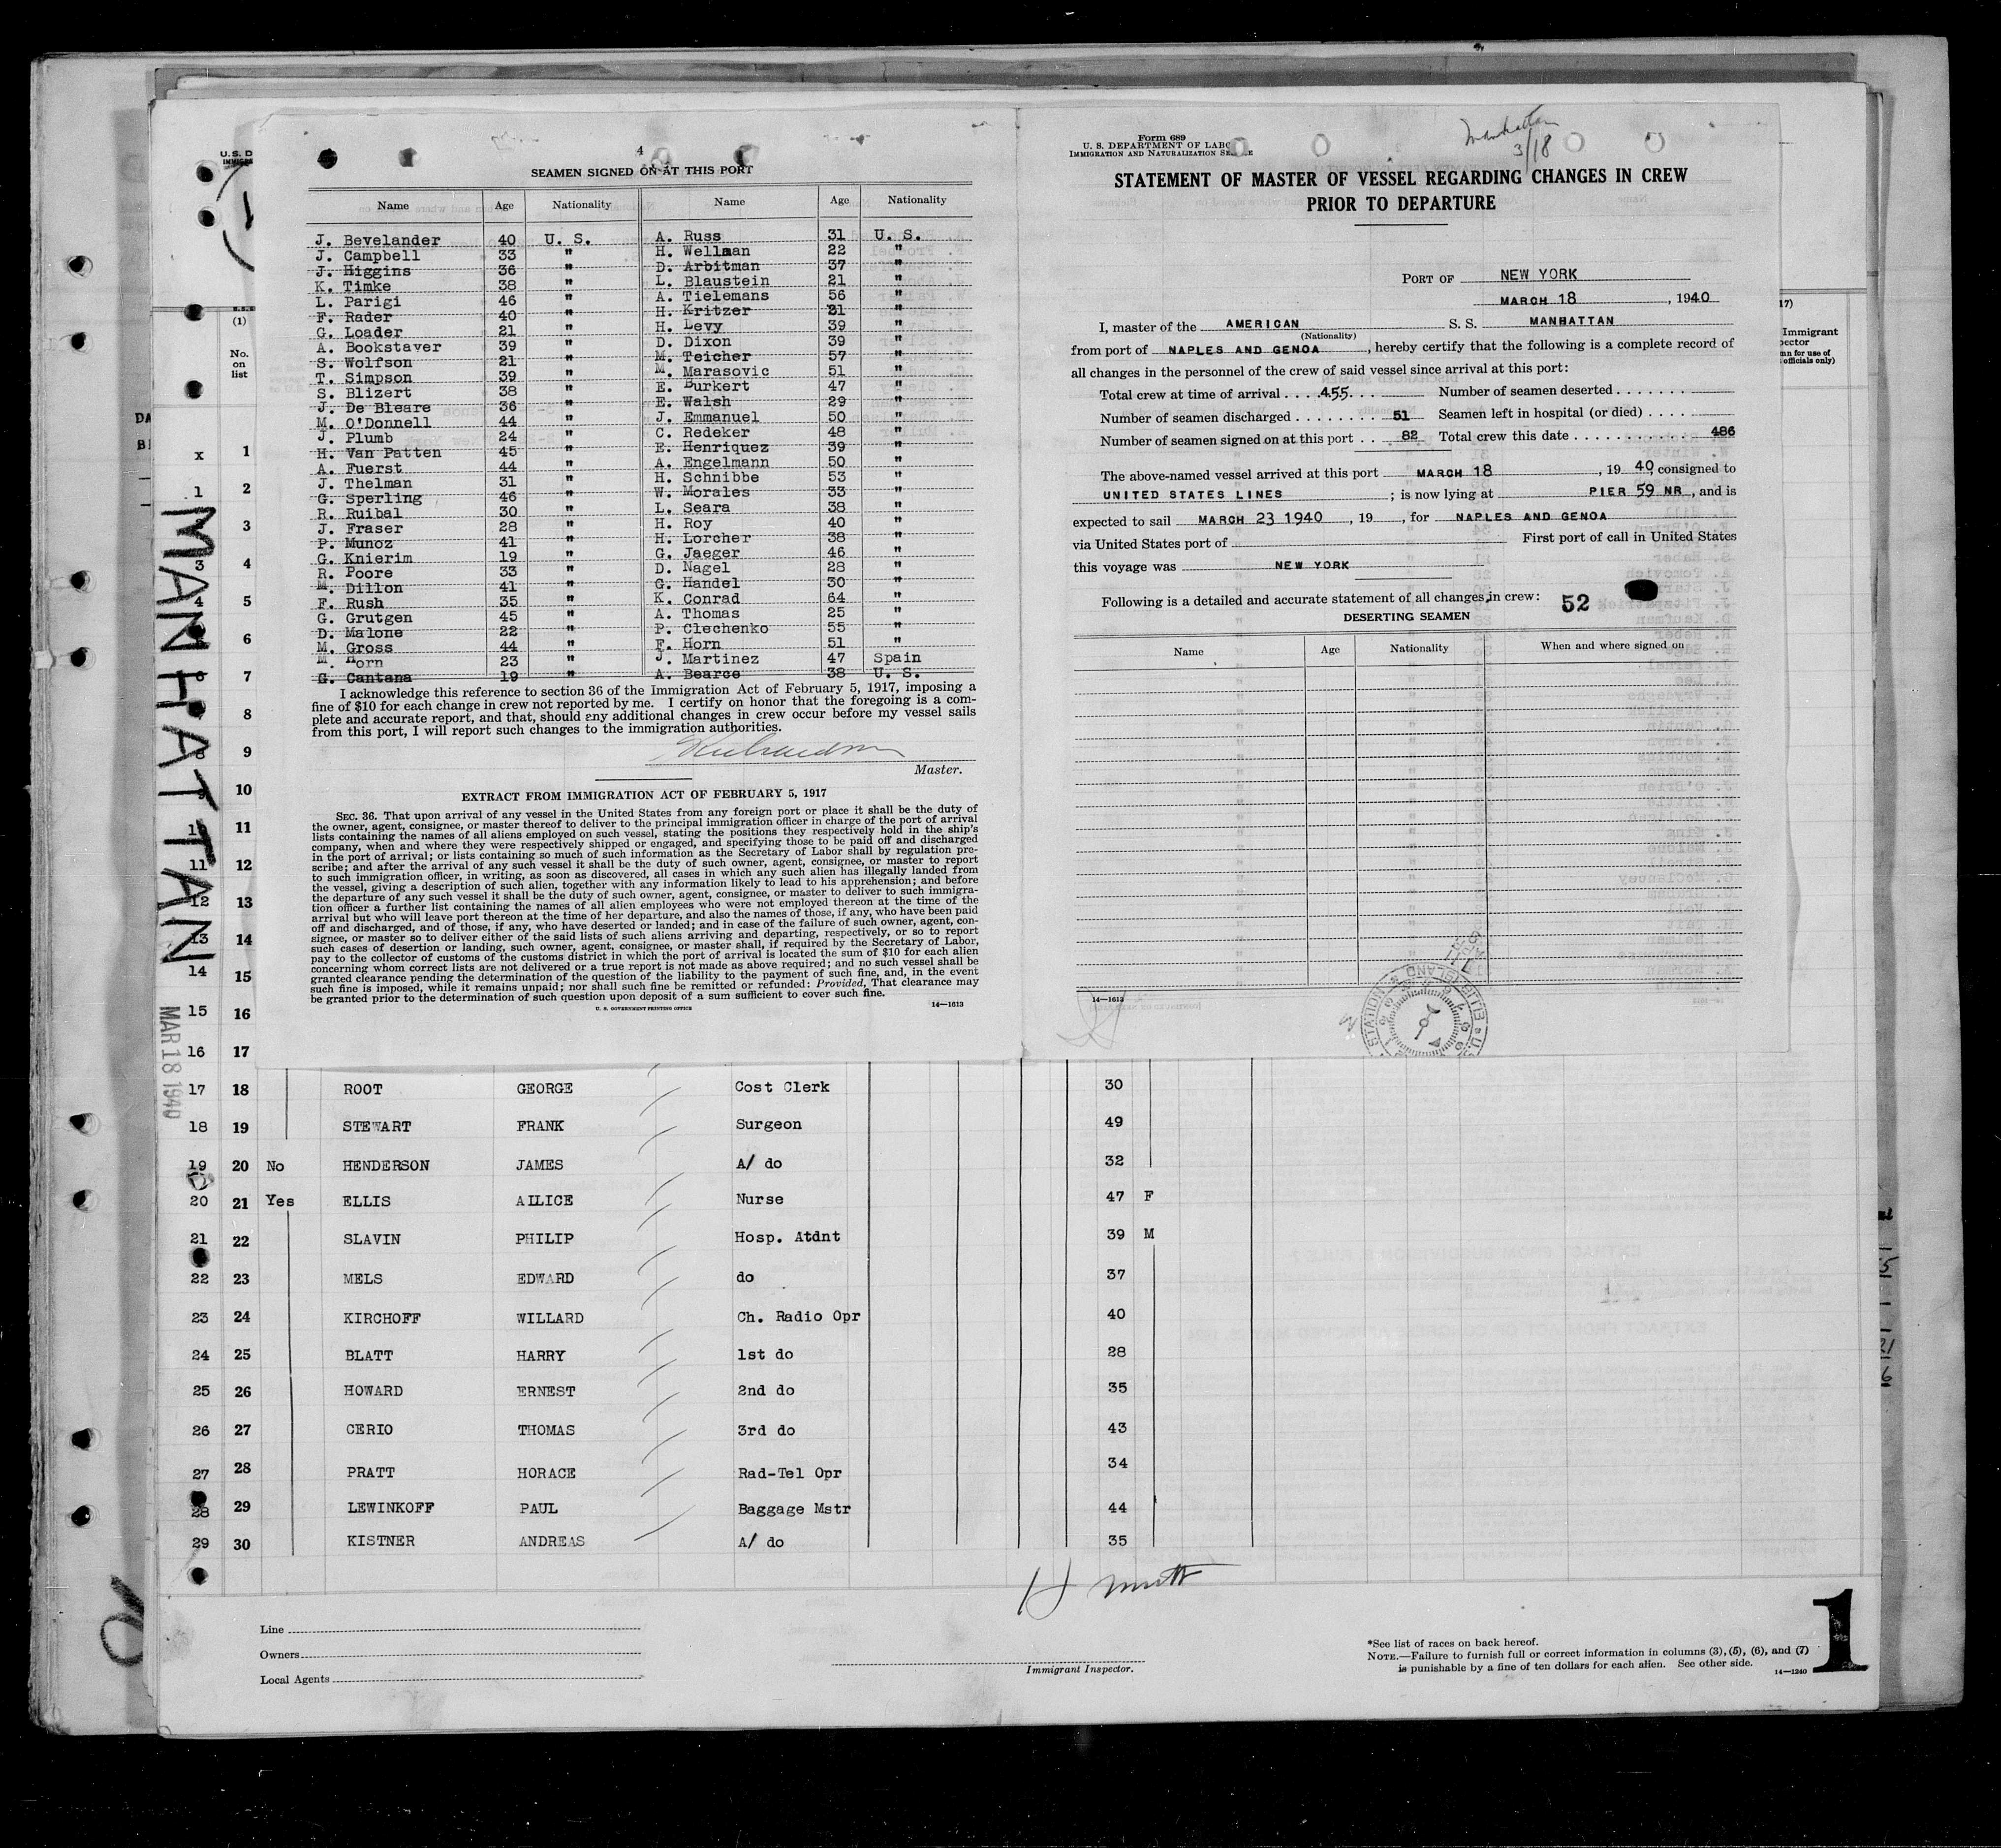 4
SEAMEN SIGNED ON AT THIS PORT
Name Age Nationality Name Age Nationality
J. Bevelander 40 U. S. A. Russ 31 U. S.
J. Campbell 33 " H. Wellman 22 "
J. Higgins 36 " D. Arbitman 37 "
K. Timke 38 " L. Blaustein 21 "
L. Parigi 46 " A. Tielemans 56 "
F. Rader 40 " H. Kritzer 21 "
G. Loader 21 " H. Levy 39 "
A. Bookstaver 39 " D. Dixon 39 "
S. Wolfson 21 " M. Teicher 57 "
T. Simpson 39 " M. Marasovic 51 "
S. Blizert 38 " E. Burkert 47 "
J. De Bleare 36 " E. Walsh 29 "
M. O'Donnell 44 " J. Emmanuel 50 "
J. Plumb 24 " C. Redeker 48 "
H. Van Patten 45 " E. Henriquez 39 "
A. Fuerst 44 " A. Engelmann 50 "
J. Thelman 31 " H. Schnibbe 53 "
G. Sperling 46 " W. Morales 33 "
R. Ruibal 30 " L. Seara 38 "
J. Fraser 28 " H. Roy 40 "
P. Munoz 41 " H. Lorcher 38 "
G. Knierim 19 " G. Jaeger 46 "
R. Poore 33 " D. Nagel 28 "
M. Dillon 41 " G. Handel 30 "
F. Rush 35 " K. Conrad 64 "
G. Grutgen 45 " A. Thomas 25 "
D. Malone 22 " P. Clechenko 55 "
M. Gross 44 " F. Horn 51 "
M. Horn 23 " J. Martinez 47 Spain
G. Cantana 19 " A. Bearce 38 U. S.
I acknowledge this reference to section 36 of the Immigration Act of February 5, 1917, imposing a
fine of $10 for each change in crew not reported by me. I certify on honor that the foregoing is a com-
plete and accurate report, and that, should any additional changes in crew occur before my vessel sails
from this port, I will report such changes to the immigration authorities.
Master.
EXTRACT FROM IMMIGRATION ACT OF FEBRUARY 5, 1917
SEC. 36. That upon arrival of any vessel in the United States from any foreign port or place it shall be the duty of
the owner, agent, consignee, or master thereof to deliver to the principal immigration officer in charge of the port of arrival
lists containing the names of all aliens employed on such vessel, stating the positions they respectively hold in the ship's
company, when and where they were respectively shipped or engaged, and specifying those to be paid off and discharged
in the port of arrival; or lists containing so much of such information as the Secretary of Labor shall by regulation pre-
scribe; and after the arrival of any such vessel it shall be the duty of such owner, agent, consignee, or master to report
to such immigration officer, in writing, as soon as discovered, all cases in which any such alien has illegally landed from
the vessel, giving a description of such alien, together with any information likely to lead to his apprehension; and before
the departure of any such vessel it shall be the duty of such owner, agent, consignee, or master to deliver to such immigra-
tion officer a further list containing the names of all alien employees who were not employed thereon at the time of the
arrival but who will leave port thereon at the time of her departure, and also the names of those, if any, who have been paid
off and discharged, and of those, if any, who have deserted or landed; and in case of the failure of such owner, agent, con-
signee, or master so to deliver either of the said lists of such aliens arriving and departing, respectively, or so to report
such cases of desertion or landing, such owner, agent, consignee, or master shall, if required by the Secretary of Labor,
pay to the collector of customs of the customs district in which the port of arrival is located the sum of $10 for each alien
concerning whom correct lists are not delivered or a true report is not made as above required; and no such vessel shall be
granted clearance pending the determination of the question of the liability to the payment of such fine, and, in the event
such fine is imposed, while it remains unpaid; nor shall such fine be remitted or refunded: Provided, That clearance may
be granted prior to the determination of such question upon deposit of a sum sufficient to cover such fine.
U. S. GOVERNMENT PRINTING OFFICE 14—1613
Form 689
U. S. DEPARTMENT OF LABO
IMMIGRATION AND NATURALIZATION SE
Manhattan
3/18
STATEMENT OF MASTER OF VESSEL REGARDING CHANGES IN CREW
PRIOR TO DEPARTURE
PORT OF NEW YORK
MARCH 18, 1940
I, master of the AMERICAN S. S. MANHATTAN
(Nationality)
from port of NAPLES AND GENOA, hereby certify that the following is a complete record of
all changes in the personnel of the crew of said vessel since arrival at this port:
Total crew at time of arrival . . . . 455. . . . Number of seamen deserted . . . . . . .
Number of seamen discharged . . . . . . . 51 Seamen left in hospital (or died) . . . .
Number of seamen signed on at this port . . 82 Total crew this date . . . . . . . . . . . 486
The above-named vessel arrived at this port MARCH 18, 19 40, consigned to
UNITED STATES LINES; is now lying at PIER 59 NR, and is
expected to sail MARCH 23 1940, 19 , for NAPLES AND GENOA
via United States port of First port of call in United States
this voyage was NEW YORK
Following is a detailed and accurate statement of all changes in crew: 52
DESERTING SEAMEN
Name Age Nationality When and where signed on
14—1613
U.S. D
(1)
No.
on
list
17)
Immigrant
MANHATTAN
MAR 18 1940
x 1
1 2
3
3 4
4 5
6
6 7
8
8 9
9 10
10 11
11 12
12 13
13 14
14 15
15 16
16 17
17 18 ROOT GEORGE Cost Clerk 30
18 19 STEWART FRANK Surgeon 49
19 20 No HENDERSON JAMES A/ do 32
20 21 Yes ELLIS ALICE Nurse 47 F
21 22 SLAVIN PHILIP Hosp. Atdnt 39 M
22 23 MELS EDWARD do 37
23 24 KIRCHOFF WILLARD Ch. Radio Opr 40
24 25 BLATT HARRY 1st do 28
25 26 HOWARD ERNEST 2nd do 35
26 27 CERIO THOMAS 3rd do 43
27 28 PRATT HORACE Rad-Tel Opr 34
28 29 LEWINKOFF PAUL Baggage Mstr 44
29 30 KISTNER ANDREAS A/ do 35
Line
Owners
Local Agents
Immigrant Inspector.
*See list of races on back hereof.
NOTE.—Failure to furnish full or correct information in columns (3), (5), (6), and (7)
is punishable by a fine of ten dollars for each alien. See other side. 14—1240
1